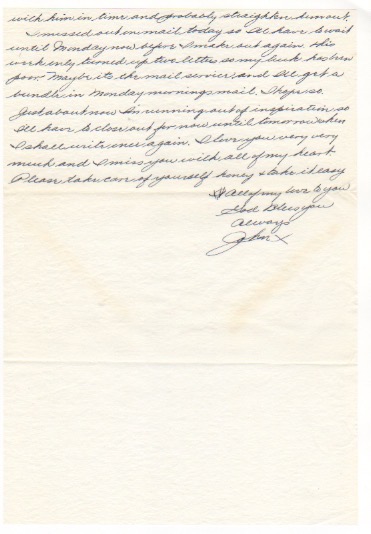 with him in time and probably straighten him out.
I missed out on mail today so I'll have to wait
until Monday now before I make out again. This
week only turned up two letters so my luck has been
poor. Maybe its the mail service and I'll get a
bundle in Monday mornings mail. I hope so.
Just about now I'm running out of inspiration so
I'll have to close out for now until tomorrow when
I shall write once again. I love you very very
much and I miss you with all of my heart.
Please take care of yourself honey & take it easy
All of my love to you
God Bless you
Always
John X